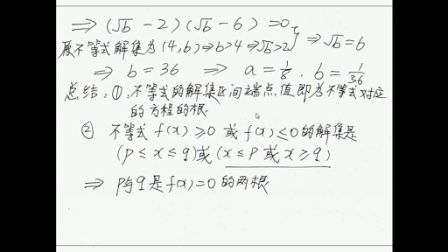 ⟹ (√b-2)(√b-6)=0
原不等式解集为(4,b)⟹b>4⟹√b>2 } ⟹√b=6
⟹ b=36 ⟹ a=1/8, b=1/36
总结:①:不等式的解集区间端点值即为不等式对应
的方程的根
② 不等式 f(x)≥0 或 f(x)≤0 的解集是
(p≤x≤q)或(x≤p 或 x≥q)
⟹ p与q是f(x)=0的两根